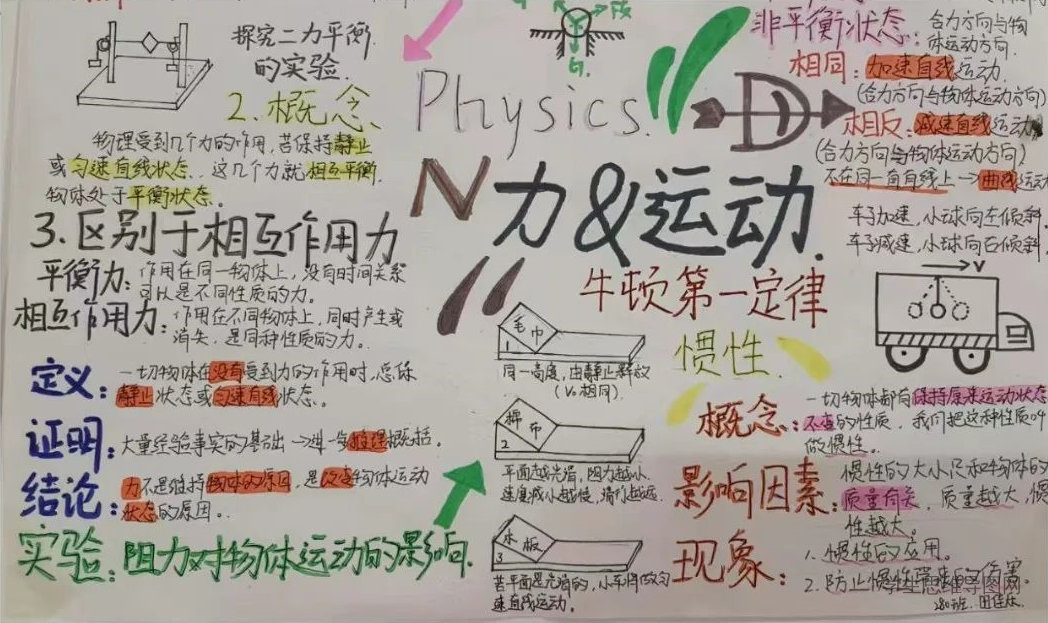 探究二力平衡
的实验.
2.概念、
物理受到几个力的作用,若保持静止
或匀速直线状态..这几个力就相互平衡.
物体处于平衡状态。
3.区别于相互作用力
平衡力:作用在同一物体上,没有时间关系
可以是不同性质的力。
相互作用力:作用在不同物体上,同时产生或
消失,是同种性质的力。
Physics.
力&运动.
牛顿第一定律
定义:一切物体在没有受到力的作用时,总保
静止状态或匀速直线状态。
证明:大量经验事实的基础→进一步推理概括。
结论:力不是维持物体的原因,是改变物体运动
状态的原因。
实验:阻力对物体运动的影响.
毛巾
1
同一高度,由静止释放
(V₀相同)
棉布
2
平面越光滑,阻力越小
速度减小越慢,滑行越远.
木板
3
若平面是光滑的,小车将做匀
速直线运动。
非平衡状态:合力方向与物
体运动方向.
相同:加速直线运动.
(合力方向与物体运动方向)
相反:减速直线运动
(合力方向与物体运动方向)
不在同一直线上→曲线运动
车子加速,小球向左倾斜
车子减速,小球向右倾斜.
V
惯性.
概念:一切物体都有保持原来运动状态
不变的性质,我们把这种性质叫
做惯性。
影响因素:惯性的大小只和物体的
质量有关,质量越大,惯
性越大。
现象:1.惯性的应用。
2.防止惯性
280班